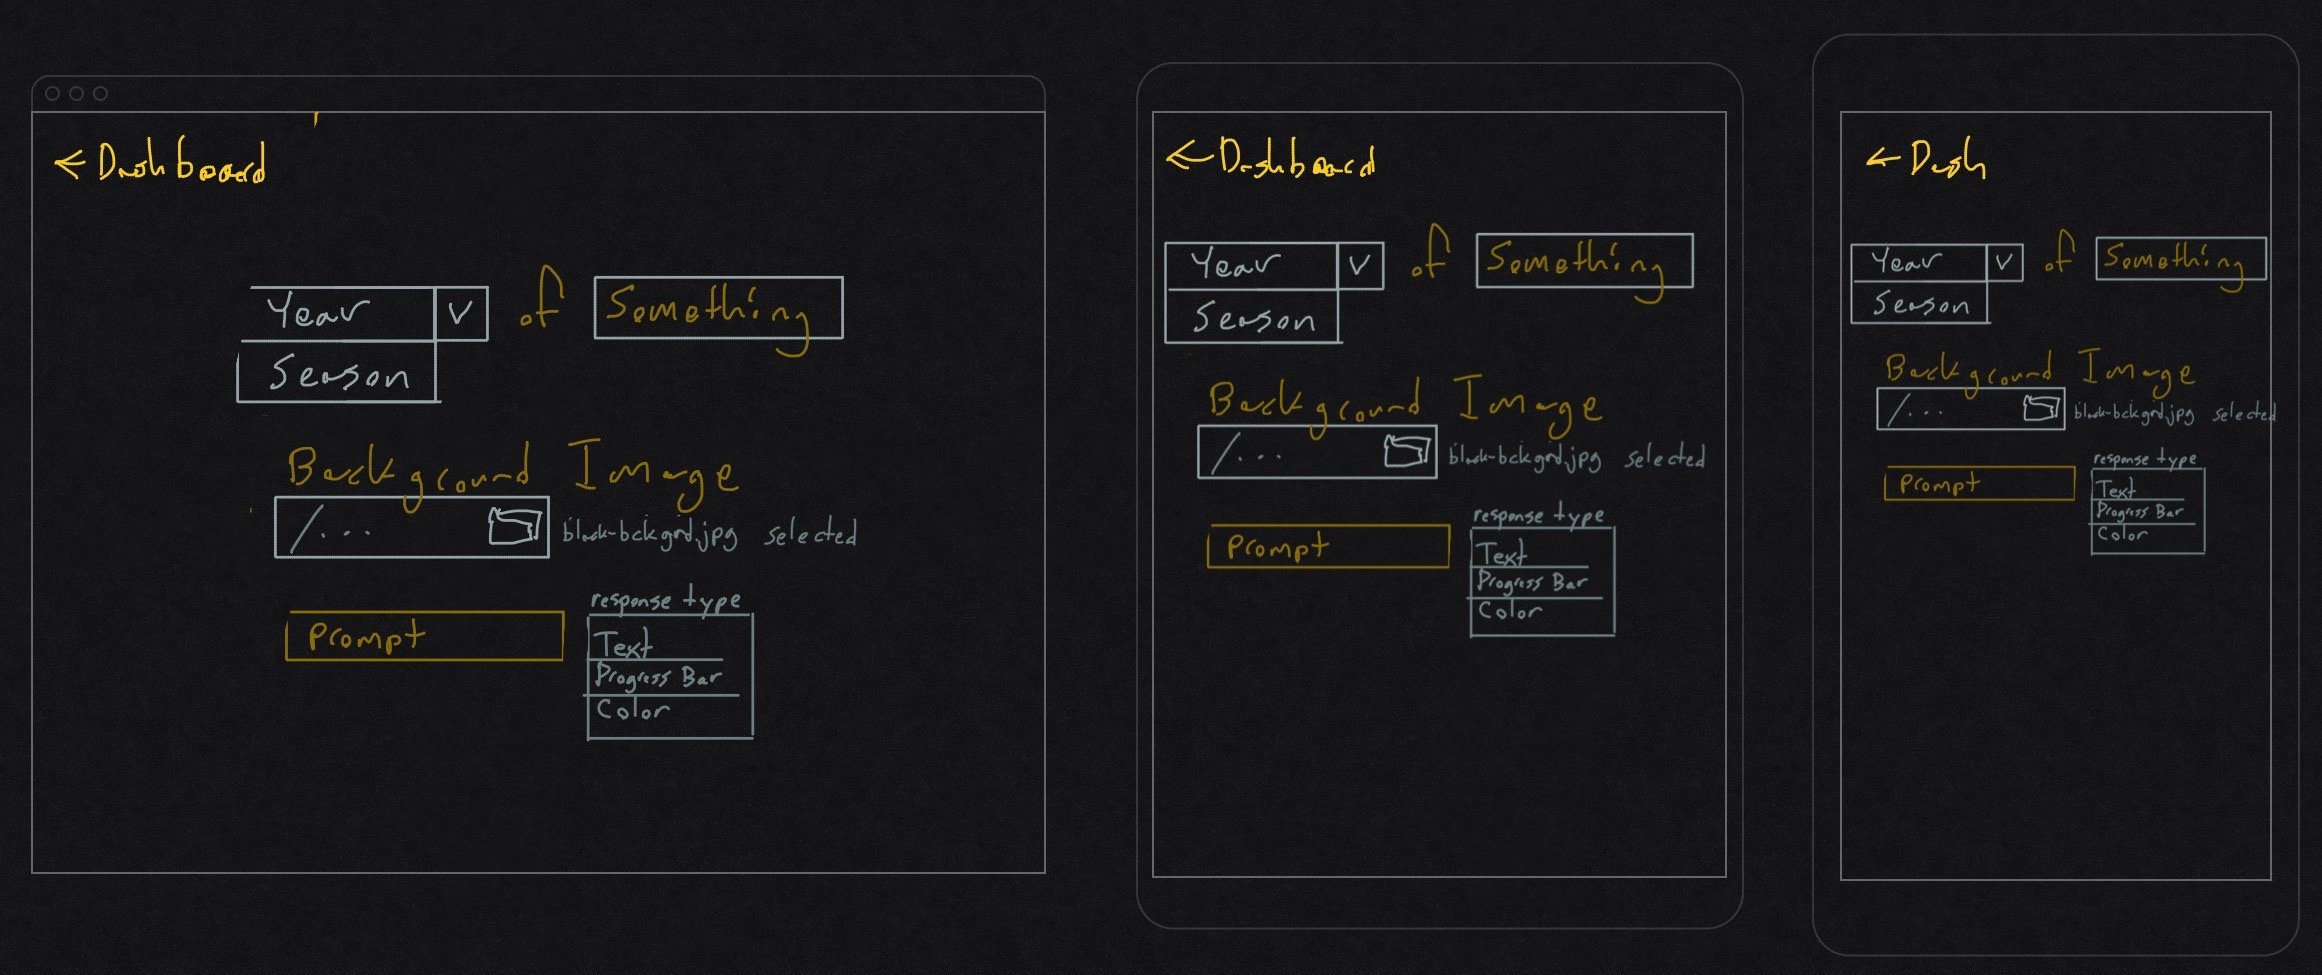 ← Dashboard
Year V of Something
Season
Background Image
/... black-bckgrd.jpg selected
response type
Prompt
Text
Progress Bar
Color
← Dashboard
Year V of Something
Season
Background Image
/... black-bckgrd.jpg selected
response type
Prompt
Text
Progress Bar
Color
← Dash
Year V of Something
Season
Background Image
/... black-bckgrd.jpg selected
response type
Prompt
Text
Progress Bar
Color